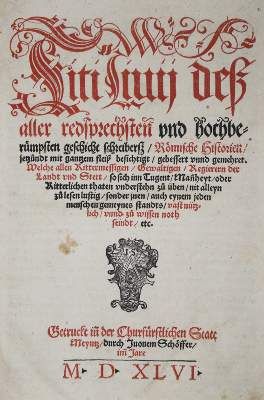 Titi Liuij deß
aller redsprechsten vnd hochbe-
rümpsten geschicht schreiberß / Römische Historien /
jetzůndt mit gantzem fleiß besichtigt / gebessert vnnd gemehret.
Welche allen Rittermessigen / Gewaltigen / Regierern der
Landt vnd Stett / so sich inn Tugent / Mañheyt / oder
Ritterlichen thaten vnderstehn zů üben / nit alleyn
zů lesen lustig / sonder jnen / auch eynem jeden
menschen gemeynes standts / vast nütz-
lich / vnnd zů wissen noth
seindt / etc.
Getruckt in der Churfürstlichen Statt
Meyntz / durch Juonem Schöffer /
im Jare
M D XLVI